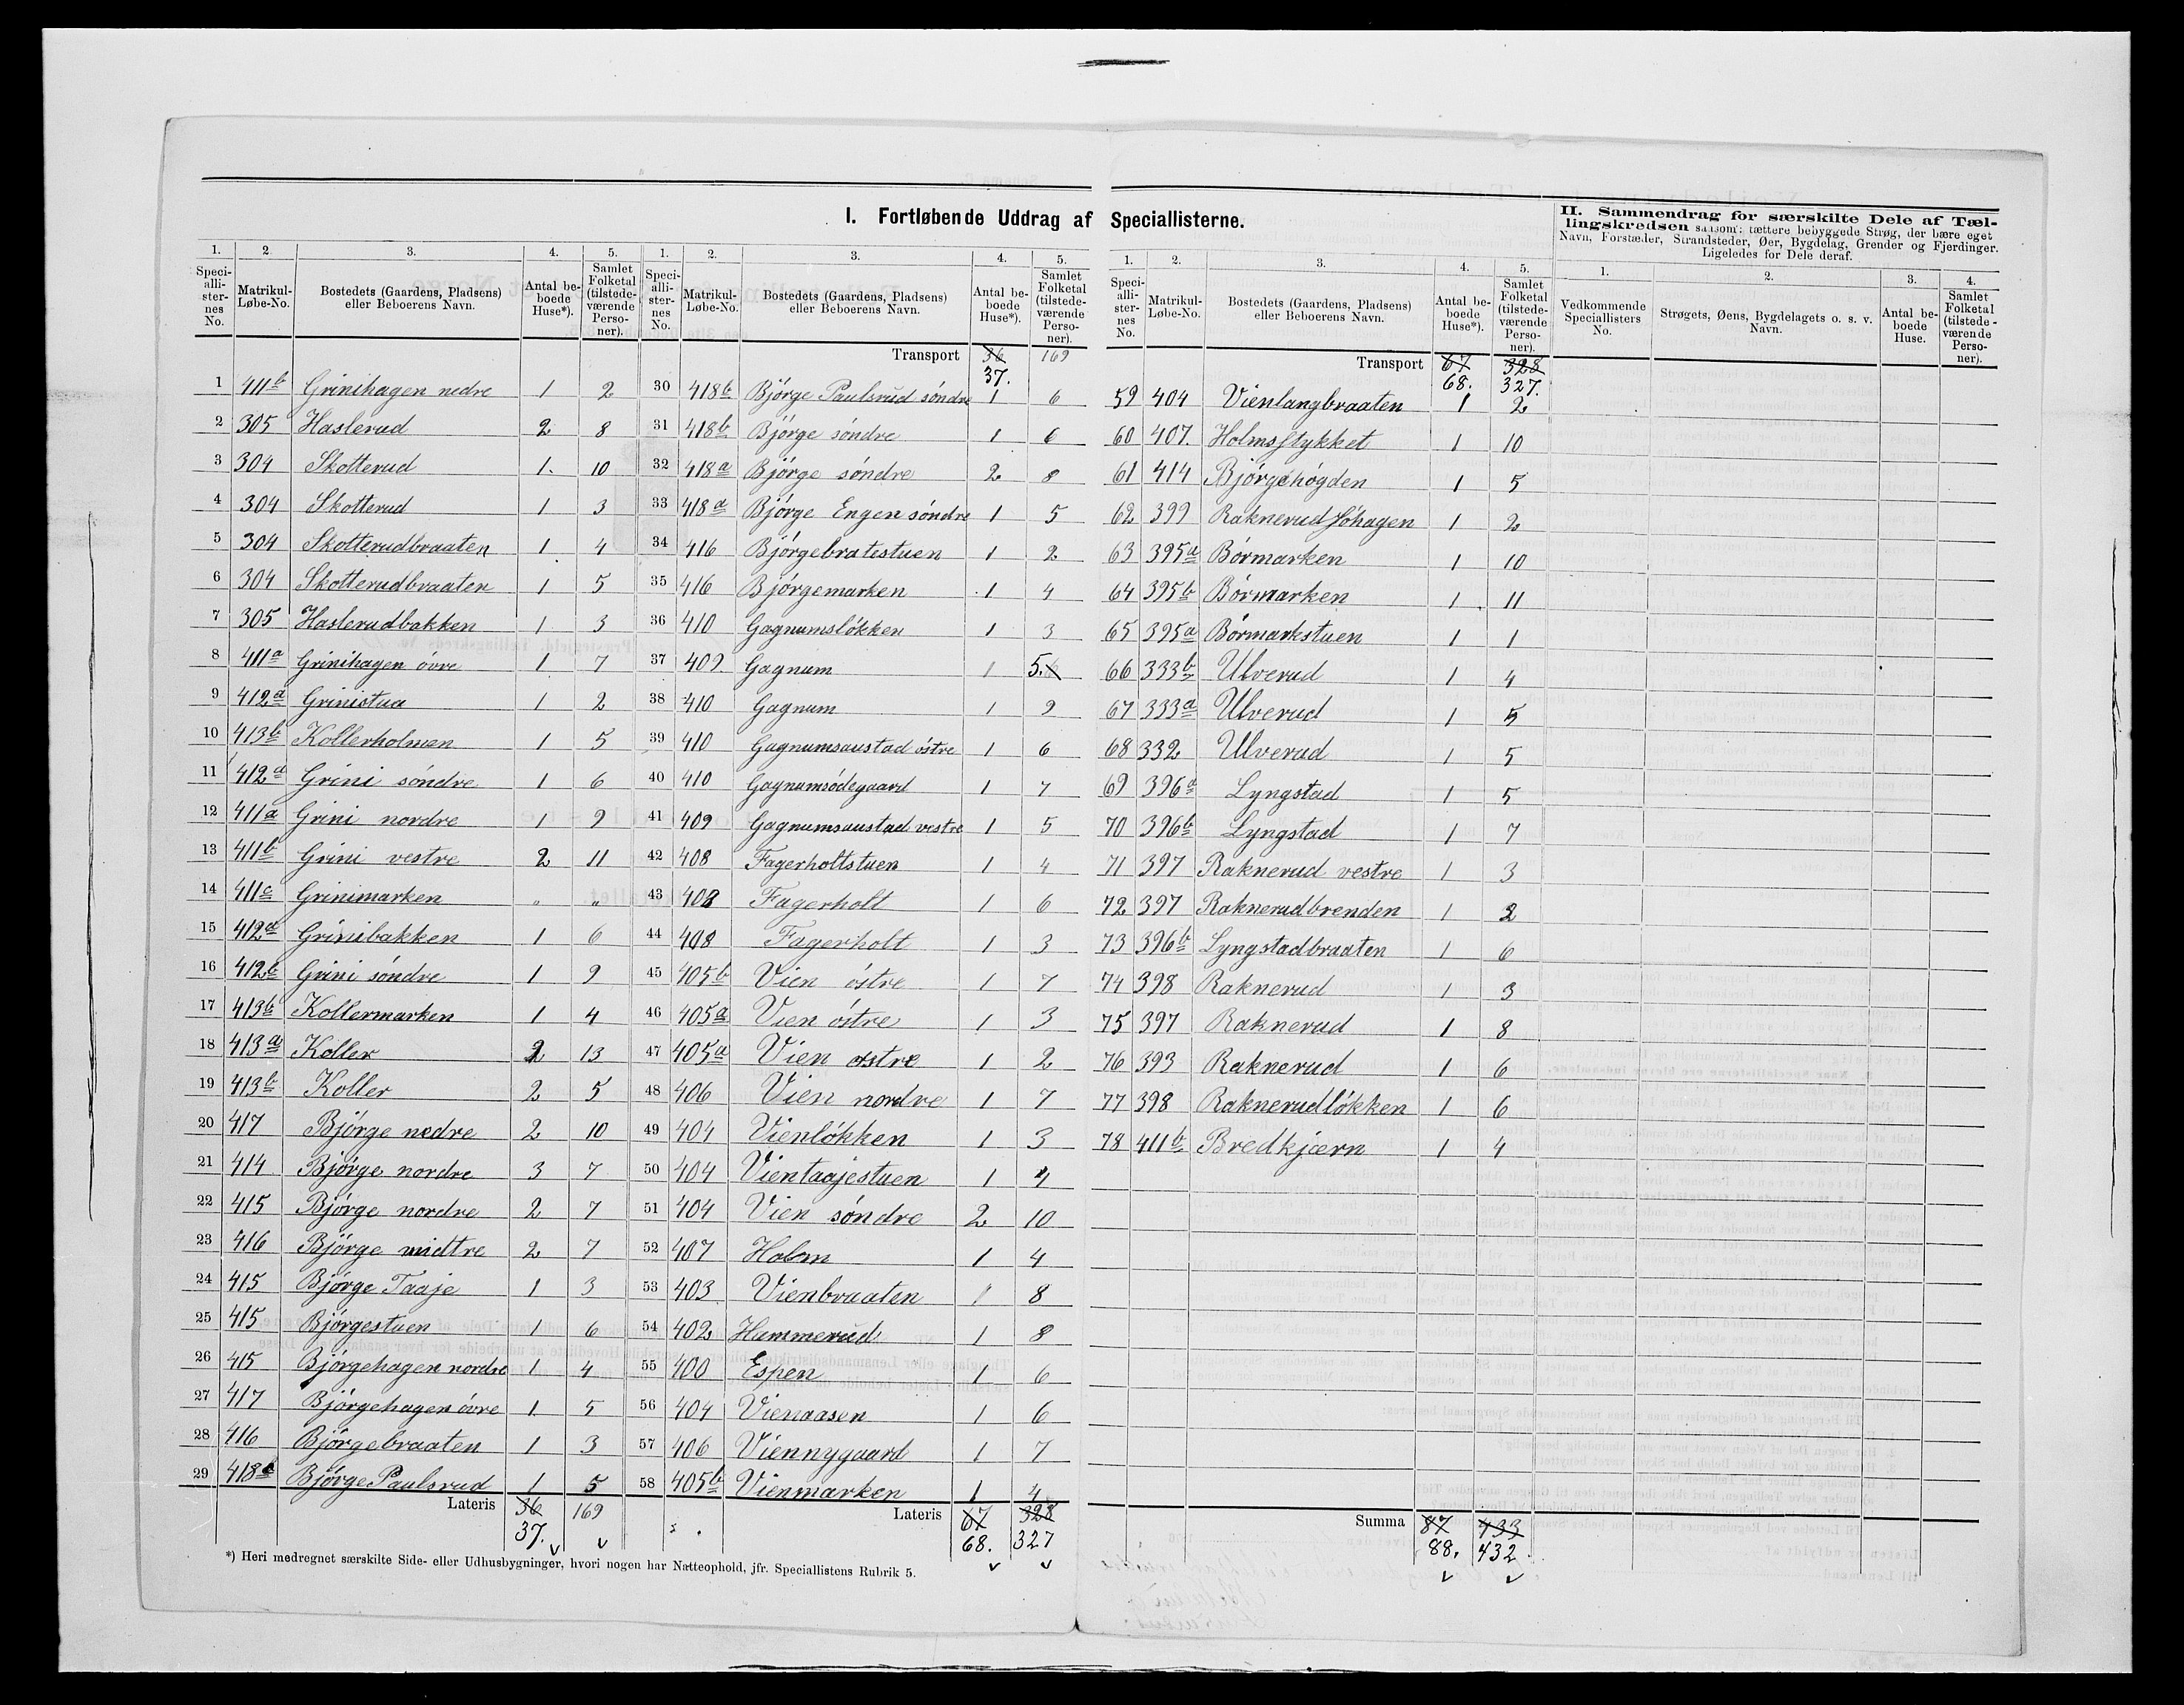 I. Fortløbende Uddrag af Speciallisterne.
II. Sammendrag for særskilte Dele af Tæl-
lingskredsen saasom: tættere bebyggede Strøg, der bære eget
Navn, Forstæder, Strandsteder, Øer, Bygdelag, Grender og Fjerdinger.
Ligeledes for Dele deraf.
1. 2. 3. 4. 5. 1. 2. 3. 4. 5. 1. 2. 3. 4. 5. 1. 2. 3. 4.
Speci-alli-ster-nes No. Matrikul-Løbe-No. Bostedets (Gaardens, Pladsens) eller Beboerens Navn. Antal be-boede Huse*). Samlet Folketal (tilstede-værende Perso-ner).
Speci-alli-ster-nes No. Matrikul-Løbe-No. Bostedets (Gaardens, Pladsens) eller Beboerens Navn. Antal be-boede Huse*). Samlet Folketal (tilstede-værende Perso-ner).
Speci-alli-ster-nes No. Matrikul-Løbe-No. Bostedets (Gaardens, Pladsens) eller Beboerens Navn. Antal be-boede Huse*). Samlet Folketal (tilstede-værende Perso-ner).
Vedkommende Speciallisters No. Strøgets, Øens, Bygdelagets o. s. v. Navn. Antal be-boede Huse. Samlet Folketal (tilstede-værende Perso-ner).
1 411b Grinihagen nedre 1 2
2 305 Haslerud 2 8
3 304 Skotterud 1. 10
4 304 Skotterud 1 3
5 304 Skotterudbraaten 1 4
6 304 Skotterudbraaten 1 5
7 305 Haslerudbakken 1 3
8 411a Grinihagen övre 1 7
9 412a Grinistua 1 2
10 413b Kollerholmen 1 5
11 412a Grini söndre 1 6
12 411a Grini nordre 1 9
13 411b Grini vestre 2 11
14 411c Grinimarken " "
15 412a Grinibakken 1 6
16 412b Grini söndre 1 9
17 413b Kollermarken 1 4
18 413a Koller 2 13
19 413b Koller 2 5
20 417 Björge nedre 2 10
21 414 Björge nordre 3 7
22 415 Björge nordre 2 7
23 416 Björge midtre 2 7
24 415 Björge Taaje 1 3
25 415 Björgestuen 1 6
26 415 Björgehagen nordre 1 4
27 417 Björgehagen övre 1. 5
28 416 Björgebraaten 1 3
29 418 Björge Paulsrud 1 5
Lateris 36 169
37.
Transport 36 169
37.
30 418b Björge Paulsrud söndre 1 6
31 418b Björge söndre 1 6
32 418a Björge söndre 2 8
33 418a Björge Engen söndre 1 5
34 416 Björgebratestuen 1 2
35 416 Björgemarken 1 4
36 410 Gagnumslökken 1 3
37 409 Gagnum 1 5.
38 410 Gagnum 1 9
39 410 Gagnumsaustad östre 1 6
40 410 Gagnumsödegaard 1 7
41 409 Gagnumsaustad vestre 1 5
42 408 Fagerholtstuen 1 4
43 408 Fagerholt 1 6
44 408 Fagerholt 1 3
45 405b Vien östre 1 7
46 405a Vien östre 1 3
47 405a Vien östre 1 2
48 406 Vien nordre 1 7
49 404 Vienlökken 1 3
50 404 Vientaajestuen 1 4
51 404 Vien söndre 2 10
52 407 Holm 1 4
53 403 Vienbraaten 1 8
54 402 Hammerud 1 8
55 400 Espen 1 6
56 404 Vienaasen 1 6
57 406 Viennygaard 1 7
58 405b Vienmarken 1 4
Lateris 67 328
68. 327
Transport 67 328
68. 327.
59 404 Vienlangbraaten 1 2
60 407. Holmsstykket 1 10
61 414 Björgehögden 1 5
62 399 Raknerud Söhagen 1 2
63 395a Börmarken 1 10
64 395b Börmarken 1 11
65 395a Börmarkstuen 1 1
66 333b Ulverud 1 4
67 333a Ulverud 1 5
68 332 Ulverud 1 5
69 396a Lyngstad 1 5
70 396b Lyngstad 1 7
71 397 Raknerud vestre 1 3
72 397 Raknerudbrenden 1 2
73 396b Lyngstadbraaten 1 6
74 398 Raknerud 1 3
75 397 Raknerud 1 8
76 393 Raknerud 1 6
77 398 Raknerudlökken 1 6
78 411b Bredkjærn 1 4
Summa 87 433
88. 432.
*) Heri medregnet særskilte Side- eller Udhusbygninger, hvori nogen har Natteophold, jfr. Speciallistens Rubrik 5.